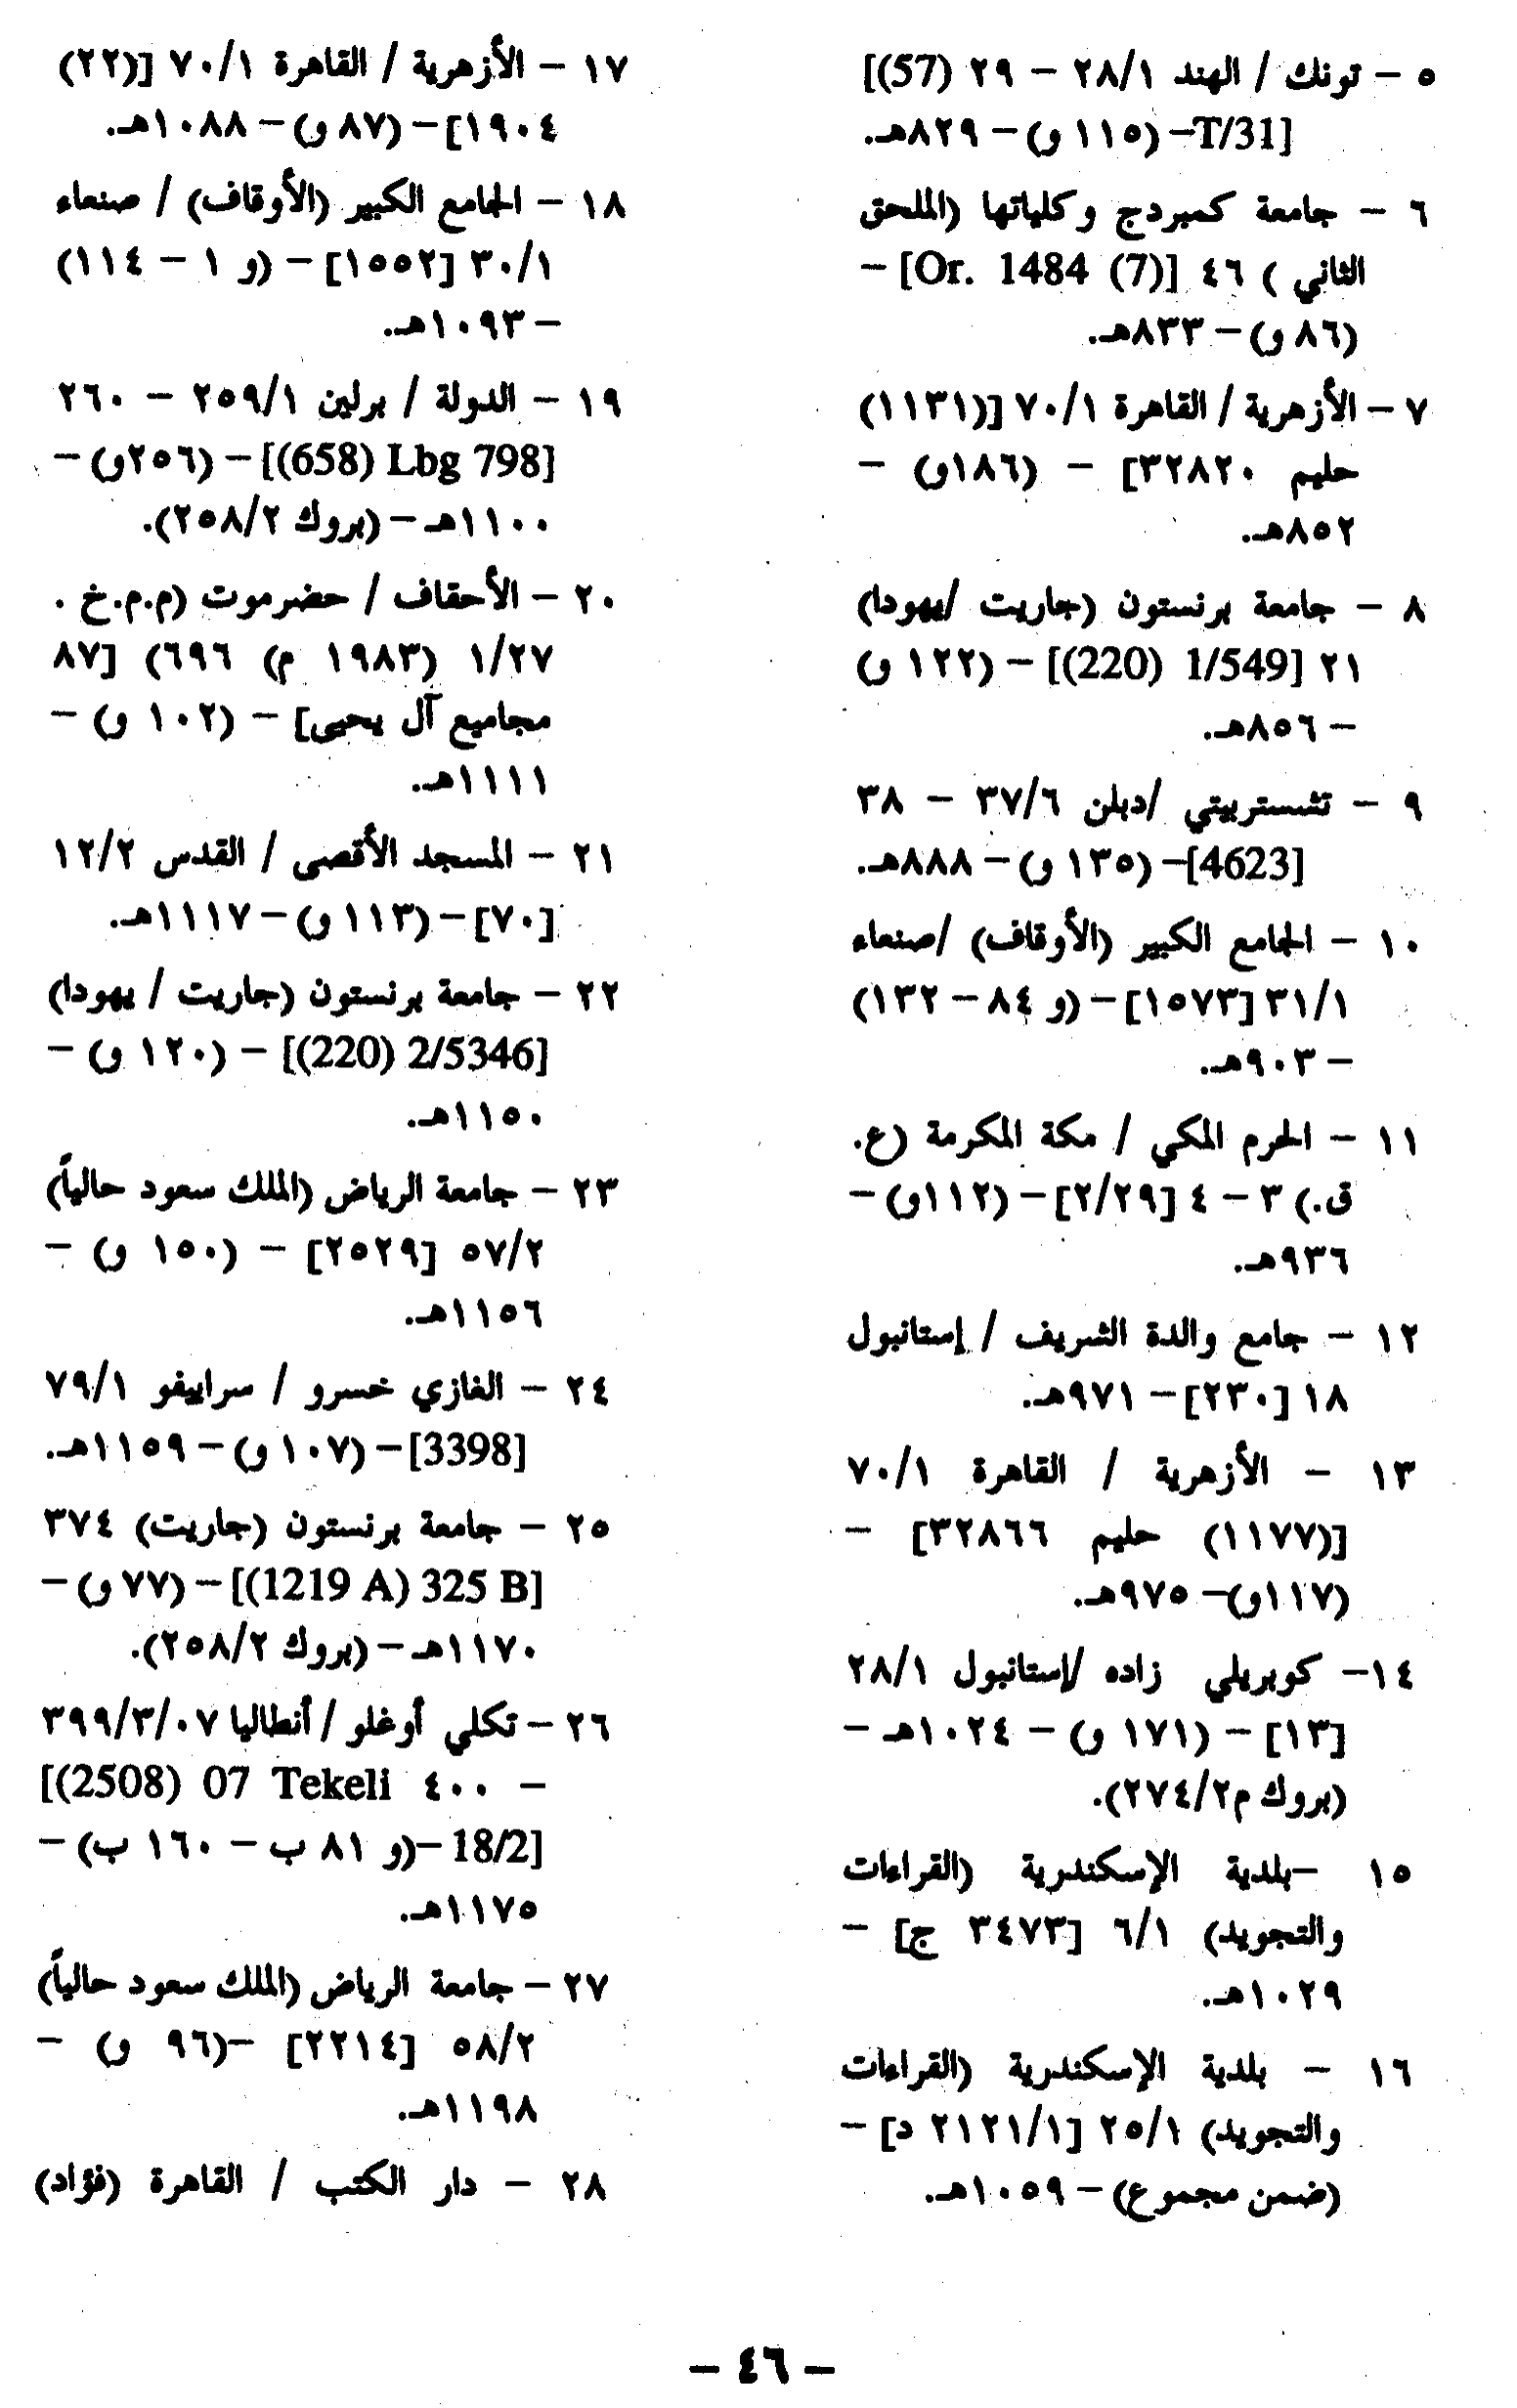 ٥ - تونك / الهند ٢٨/١ - ٢٩ [(57)
T/31] - (١١٥ و) - ٨٢٩هـ.
٦ - جامعة كمبردج وكلياتها (الملحق
الثاني) ٤٦ [Or. 1484 (7)] -
(٨٦ و) - ٨٣٣هـ.
٧ - الأزهرية / القاهرة ٧٠/١ [(١١٣١)
حليم ٣٢٨٢٠] - (١٨٦و) -
٨٥٢هـ.
٨ - جامعة برنستون (جاريت /يهودا)
٢١ [(220) 1/549] - (١٢٢ و)
- ٨٥٦هـ.
٩ - تشستربيتي /دبلن ٣٧/٦ - ٣٨
[4623] - (١٣٥ و) - ٨٨٨هـ.
١٠ - الجامع الكبير (الأوقاف) /صنعاء
٣١/١ [١٥٧٣] - (و ٨٤ - ١٣٢)
- ٩٠٣هـ.
١١ - الحرم المكي / مكة المكرمة (ع.
ق.) ٣ - ٤ [٢/٢٩] - (١١٢و) -
٩٣٦هـ.
١٢ - جامع والدة الشريف / إستانبول
١٨ [٢٣٠] - ٩٧١هـ.
١٣ - الأزهرية / القاهرة ٧٠/١
[(١١٧٧) حليم ٣٢٨٦٦] -
(١١٧و) - ٩٧٥هـ.
١٤- كوبريلي زاده /إستانبول ٢٨/١
[١٣] - (١٧١ و) - ١٠٢٤هـ -
(بروك م٢٧٤/٢).
١٥ -بلدية الإسكندرية (القراءات
والتجويد) ٦/١ [٣٤٧٣ ج] -
١٠٢٩هـ.
١٦ - بلدية الإسكندرية (القراءات
والتجويد) ٢٥/١ [٢١٢١/١ د] -
(ضمن مجموع) - ١٠٥٩هـ.
١٧ - الأزهرية / القاهرة ٧٠/١ [(٢٢)
١٩٠٤] - (٨٧ و) - ١٠٨٨هـ.
١٨ - الجامع الكبير (الأوقاف) / صنعاء
٣٠/١ [١٥٥٢] - (و ١ - ١١٤)
- ١٠٩٣هـ.
١٩ - الدولة / برلين ٢٥٩/١ - ٢٦٠
[(658) Lbg 798] - (٢٥٦و) -
١١٠٠هـ - (بروك ٢٥٨/٢).
٢٠ - الأحقاف / حضرموت (م.م.خ .
١/٢٧ (١٩٨٣ م) ٦٩٦) [٨٧
مجاميع آل يحيى] - (١٠٢ و) -
١١١١هـ.
٢١ - المسجد الأقصى / القدس ١٢/٢
[٧٠] - (١١٣ و) - ١١١٧هـ.
٢٢ - جامعة برنستون (جاريت / يهودا)
[(220) 2/5346] - (١٢٠ و) -
١١٥٠هـ.
٢٣ - جامعة الرياض (الملك سعود حالياً)
٥٧/٢ [٢٥٢٩] - (١٥٠ و) -
١١٥٦هـ.
٢٤ - الغازي خسرو / سراييفو ٧٩/١
[3398] - (١٠٧ و) - ١١٥٩هـ.
٢٥ - جامعة برنستون (جاريت) ٣٧٤
[(1219 A) 325 B] - (٧٧ و) -
١١٧٠هـ - (بروك ٢٥٨/٢).
٢٦ - تكلي أوغلو / أنطاليا ٣٩٩/٣/٠٧
- ٤٠٠ [(2508) 07 Tekeli
18/2] - (و ٨١ ب - ١٦٠ ب) -
١١٧٥هـ.
٢٧ - جامعة الرياض (الملك سعود حالياً)
٥٨/٢ [٢٢١٤] - (٩٦ و) -
١١٩٨هـ.
٢٨ - دار الكتب / القاهرة (فؤاد)
- ٤٦ -